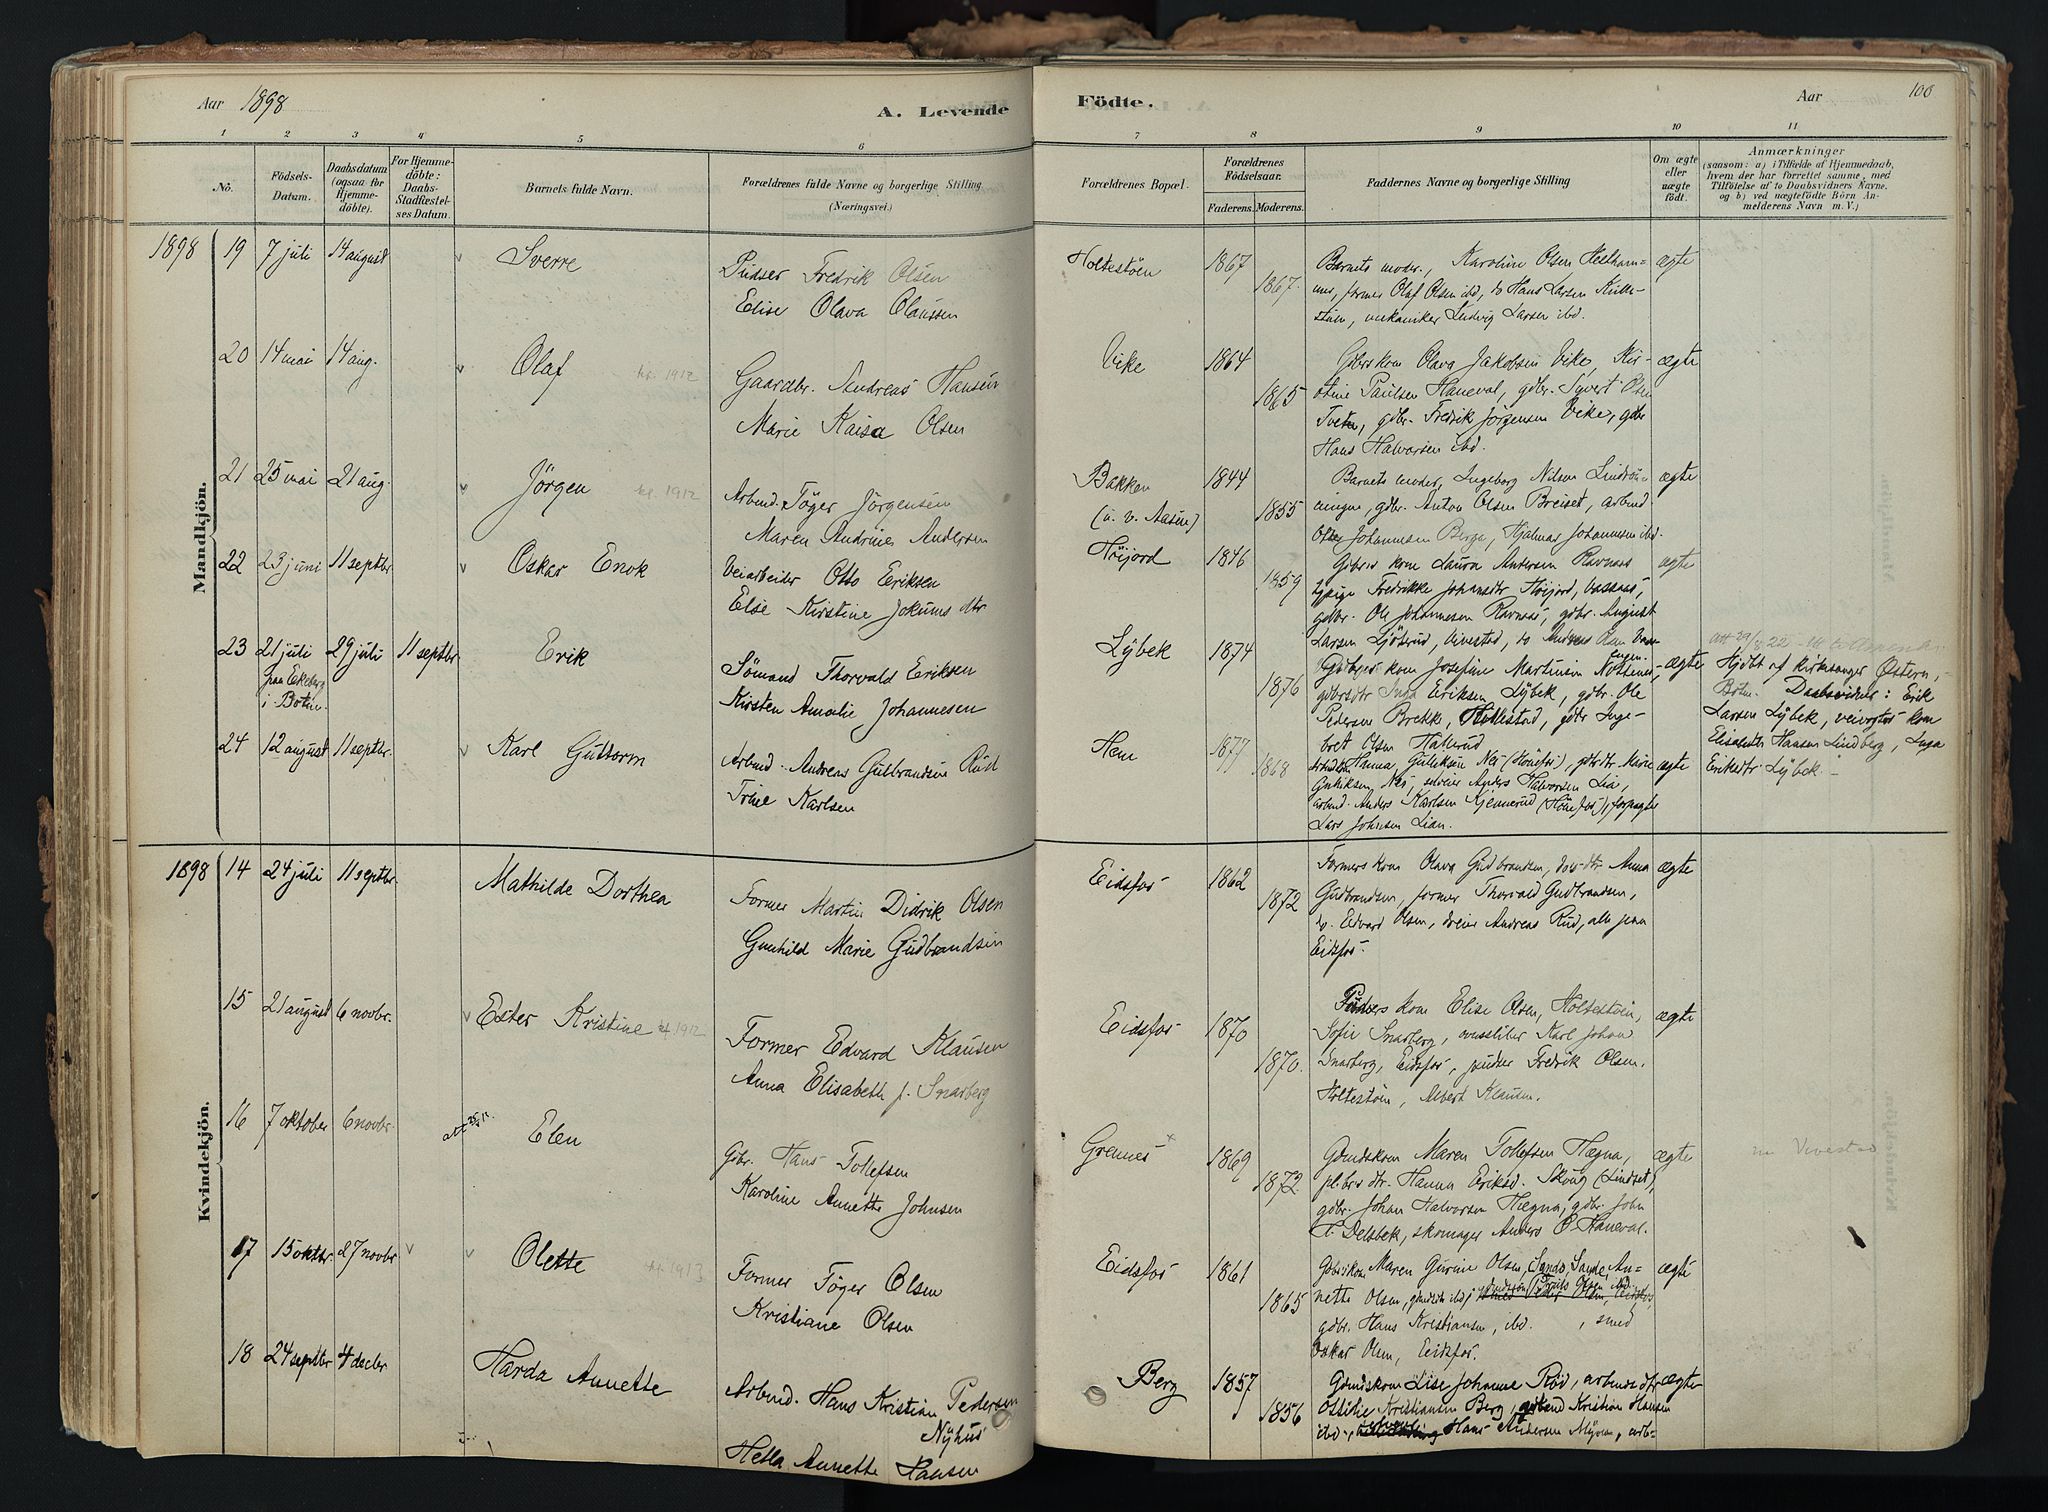 Aar 1898
A. Levende
Födte.
Aar
100
1 2 3 4 5 6 7 8 9 10 11
No.
Födsels-
Datum.
Daabsdatum
(ogsaa for
Hjemme-
döbte).
For Hjemme-
döbte:
Daabs-
Stadfæstel-
ses Datum.
Barnets fulde Navn.
Forældrenes fulde Navne og borgerlige Stilling
(Næringsvei.)
Forældrenes Bopæl.
Forældrenes
Födselsaar.
Faderens. Moderens.
Faddernes Navne og borgerlige Stilling
Om ægte
eller
uægte
födt.
Anmærkninger
(saasom: a) i Tilfælde af Hjemmedaab,
hvem der har forrettet samme, med
Tilföielse af to Daabsvidners Navne,
og b) ved uægtefödte Börn An-
melderens Navn m. V.)
Mandkjön.
1898 19 7 juli 14 august Sverre
Pudser Fredrik Olsen
Elise Olava Olaussen
Holtestöen 1867
1867.
Barnets moder, Karoline Olsen
former Olaf Olsen ibd, do Hans Larsen
mekaniker Ludvig Larsen ibd.
ægte
20 14 mai 14 aug. Olaf kf. 1912
Gaardbr. Andreas Hansen
Marie Kaisa Olsen
Vike 1864
1865
Gdbrskone Olava Jakobsen Vike, Kir-
stine Paulsen Haneval, gdbr. Syvert Olsen
Tveten, gdbr. Fredrik Jörgensen Vike, gdbr
Hans Halvorsen ibd.
ægte
21 25 mai 21 aug. Jörgen kf. 1912
Arbmd. Töger Jörgensen
Maren Andrine Andersen
Bakken
(u. v. Aasen)
1844
1855
Barnets moder, Ingeborg Nilsen
gdbr. Anton Olsen Breiset, arbmd
Johannesen Berga, Hjalmar Johannesen ibd.
ægte
22 23 juni 11 septbr. Oskar Enok
Veiarbeider Otto Eriksen
Else Kirstine Jokums dtr
Höijord 1846
1859
Gdbrs kone Laura Andersen Ravnaas
tjpige Fredrikke Johansdtr Höijord,
gdbr. Ole Johannesen Ravnaas, gdbr. August
Larsen Ljöstad, Vivestad, do Andreas
ægte
23 21 juli
paa Ekeberg
i Botne.
29 juli 11 septbr Erik
Sömand Thorvald Eriksen
Kirsten Amalie Johannesen
Lybek 1874
1876
kone Josefine Martinsen
gdbrsdtr Inga Eriksen Lybek, gdbr. Ole
Pedersen Brekke, Hillestad, gdbr Inge-
bret Olsen Hallerud
ægte
Hjdbt af kirkesanger Östern,
Botne. Daabsvidner: Erik
Larsen Lybek, veivogter kone
Elisabeth Hansen Lindberg, Inga
Eriksdtr Lybek.
24 12 august 11 septbr. Karl Guttorm
Arbmd. Andreas Gulbrandsen Rud
Trine Karlsen
Hem 1877
1868
Hanna Gulliksen Nes (Hönefos), gdbrdtr Marie
Gulliksen Nes, Anders Halvorsen Lia,
arbmd. Anders Karlsen Kjennerud (Hönefos), forpagter
Lars Johnsen Lian.
ægte
Kvindekjön.
1898 14 24 juli 11 septbr. Mathilde Dorthea
Former Martin Didrik Olsen
Gunhild Marie Gudbrandsen
Eidsfos 1862
1872
Formers kone Olava Gudbrandsen, do dtr Anna
Gudbrandsen, former Thorvald Gudbrandsen,
do. Edvard Olsen, dreier Andreas Rud, alle paa
Eidsfos.
ægte
15 21 august 6 novbr. Ester Kristine kf 1912
Former Edvard Klausen
Anna Elisabeth f. Snarberg
Eidsfos 1870
1870.
Pudsers kone Elise Olsen, Holtestöen,
Sofie Snarberg, Karl Johan
Snarberg, Eidsfos, pudser Fredrik Olsen.
Holtestöen, Albert Klausen.
ægte
16 7 oktober 6 novbr. Elen
Gbr. Hans Tollefsen
Karoline Annette Johnsen
Grennes 1869
1872
Gdmdskone Maren Tollefsen Hægna,
dtr. Hanna Eriksd. Skoug (Lindset),
gdbr. Johan Halvorsen Hægna, gdbr. John
T. Delebek, skomager Anders O. Haneval.
ægte
Vivestad
17 15 oktbr. 27 novbr Olette kf. 1913
Former Töger Olsen
Kristiane Olsen
Eidsfos 1861
1865
Gdbrskone Maren Gurine Olsen, Sande, An-
nette Olsen,
gdbr. Hans Kristiansen, ibd. , smed
Oskar Olsen, Eidsfos.
ægte
18 24 septbr 4 decbr. Harda Annette
Arbmd. Hans Kristian Pedersen
Nyhus
Hella Annette Hansen
Berg 1857
1856
Gdmdskone Lise Johanne Röd, arbmds dtr
Ottilie Kristiansen Berg, arbmd Kristian Hansen
ibd., Hans Andersen Myren, arb-
ægte